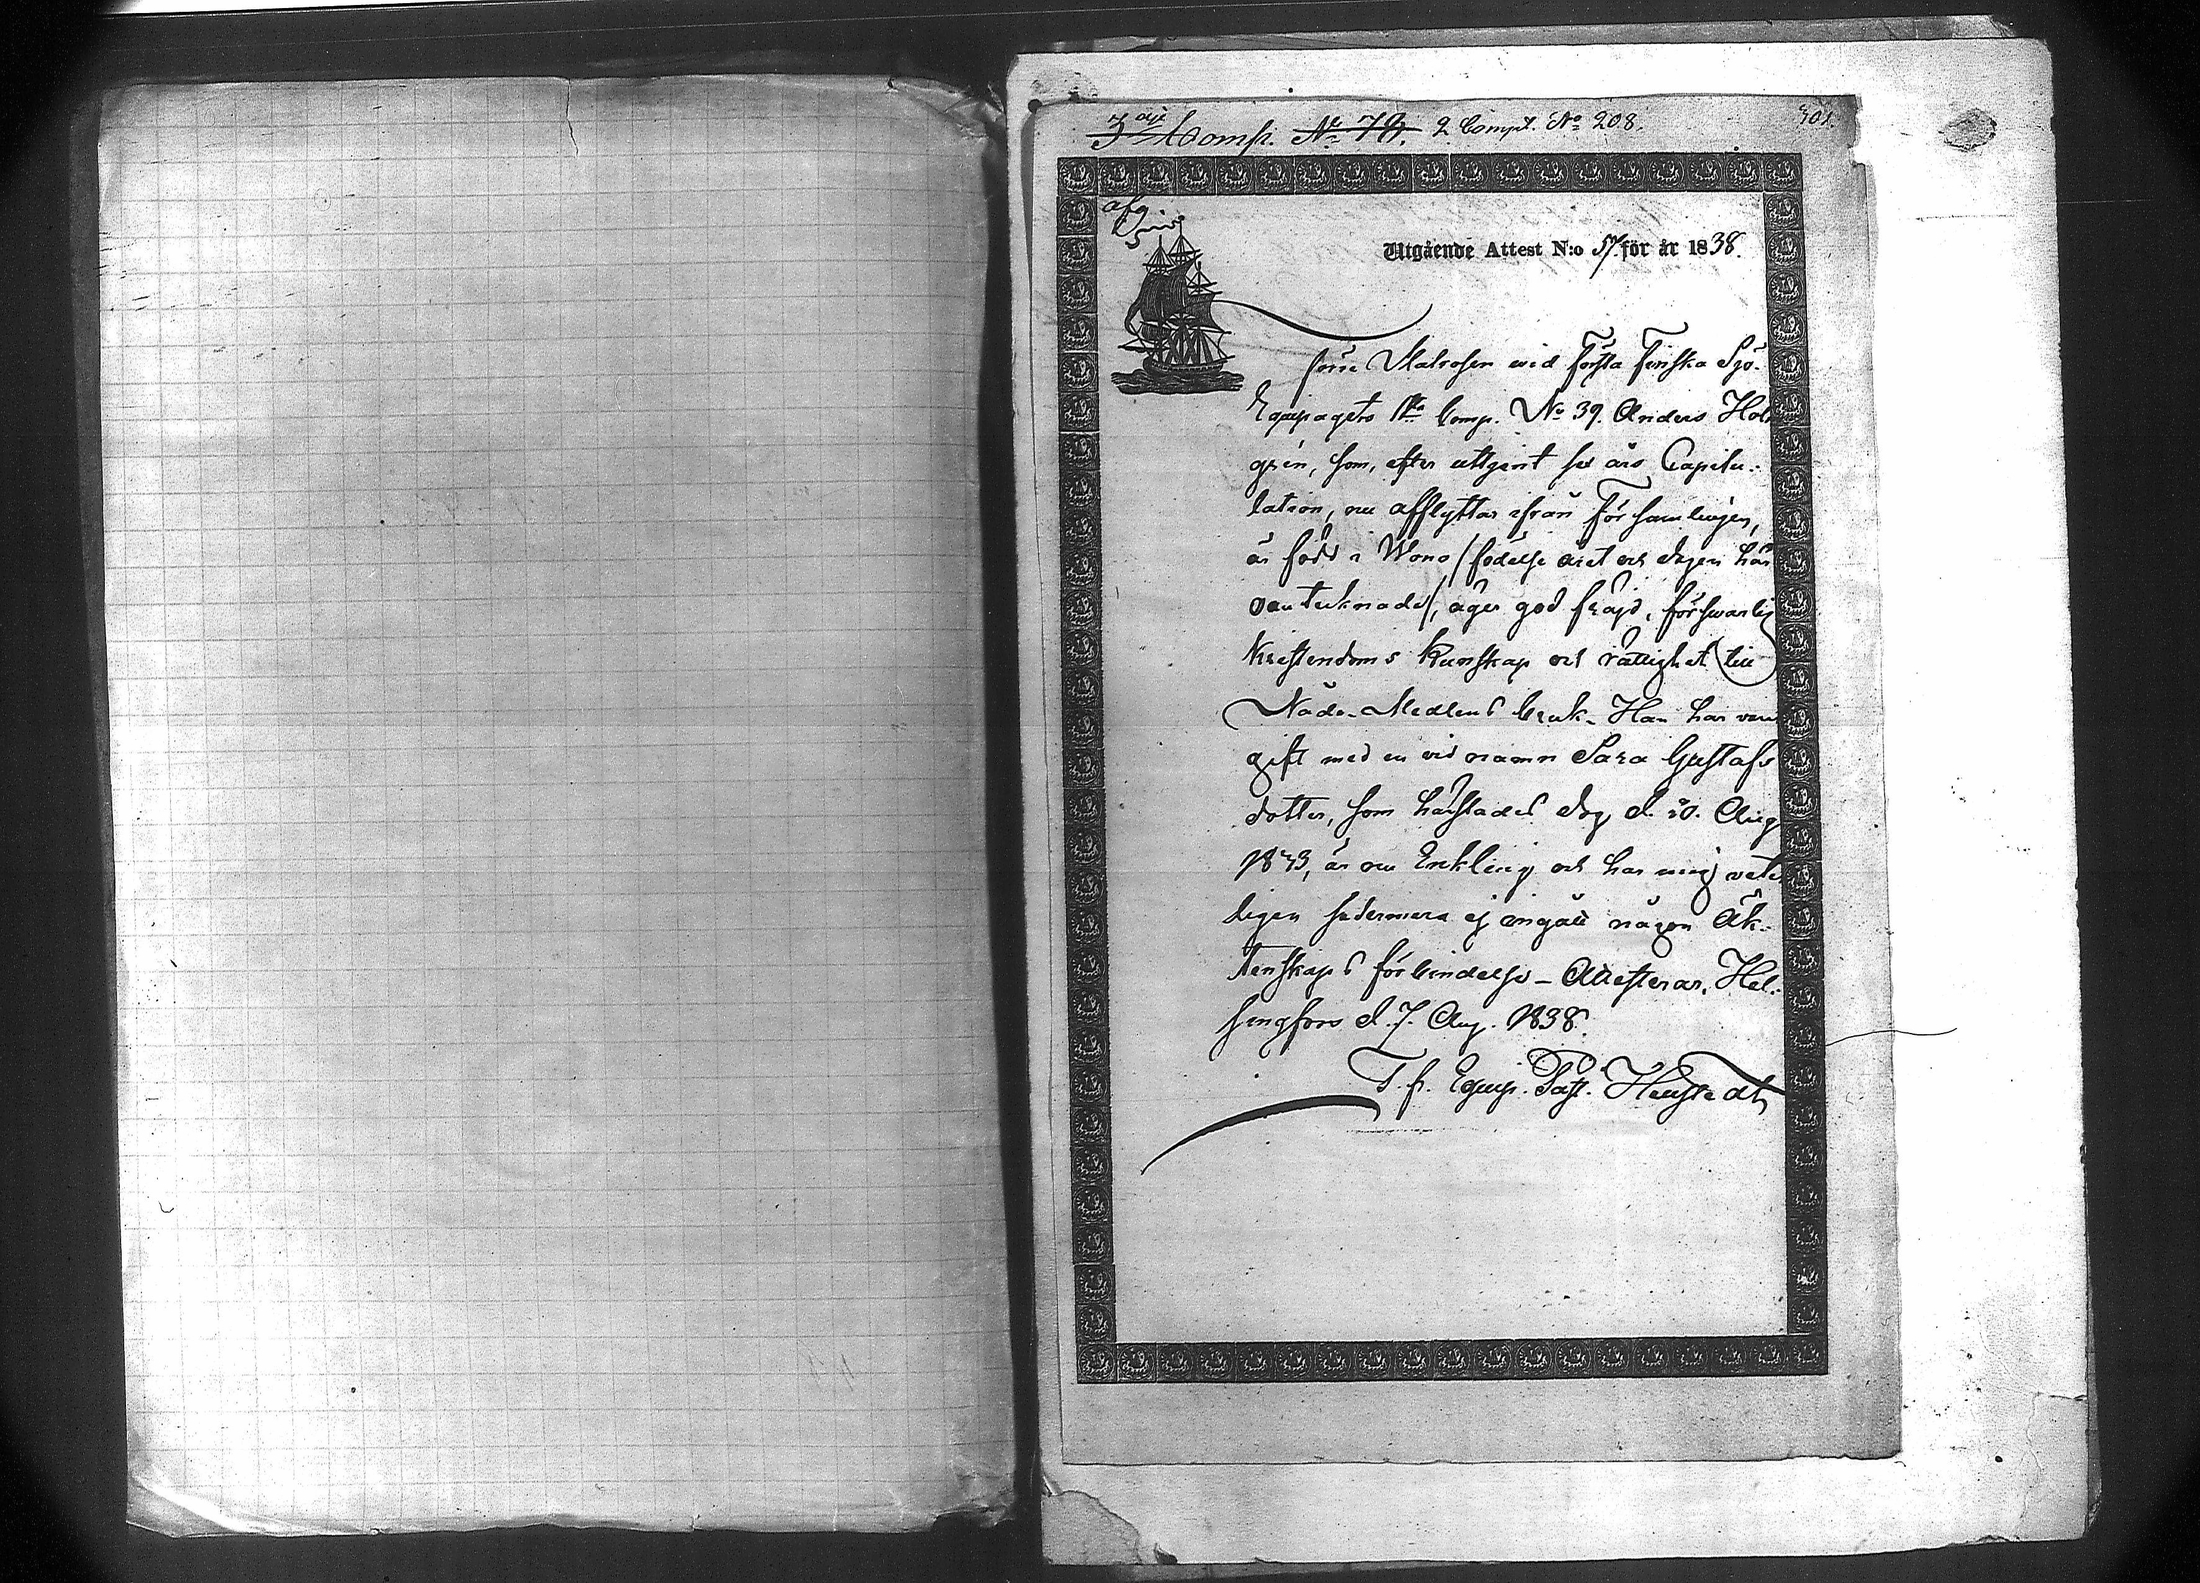 3dje Comp. No 78. 2 Comp. No 208. 301.
afg
Utgående Attest N:o 57. för år 1838.
förre Matrosen wid Första Finska Sjö-
Equipagets 1sta Comp. No 39. Anders Hol
grén, som, efter uttjent sex års Capitu-
lation, nu afflyttar ifrån Församlingen,
är född i Wono (födelse året och dagen här
oantecknade), äger god fräjd, förswarlig
Kristendoms Kunskap och rättighet till
Nåde-Medlens bruk. Han har varit
gift med en vid namn Sara Gustafs
dotter, som härstädes dog d. 20. Aug
1833, är nu Enkling och har mig veter
ligen sedermera ej ingått någon Äk-
tenskaps förbindelse – Attesterar. Hel-
singfors d. 7. Aug. 1838.
T. f. Equip. Past.